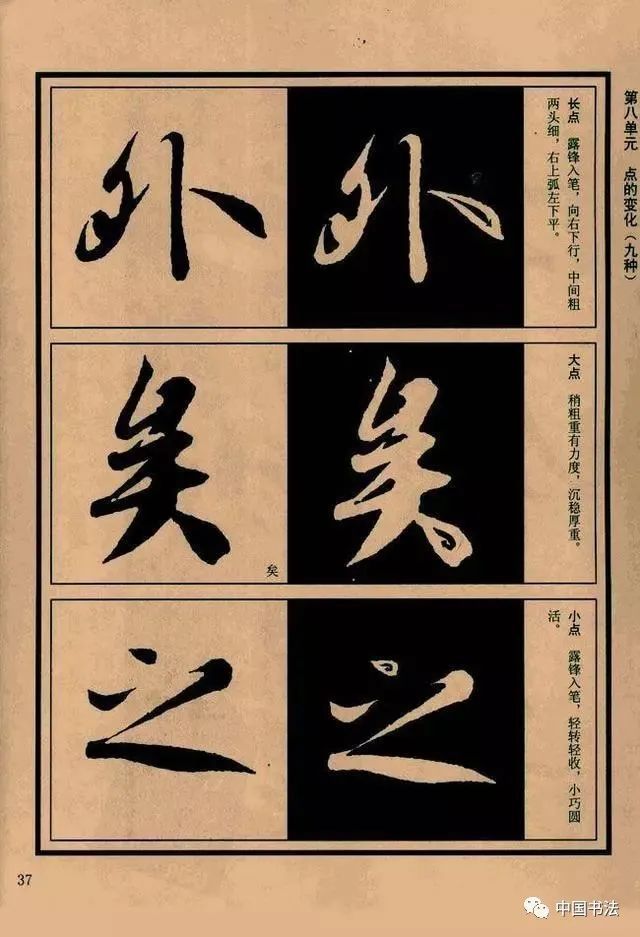 第八单元　点的变化（九种）
长点　露锋入笔，向右下行，中间粗
两头细，右上弧左下平。
外
外
大点　稍粗重有力度，沉稳厚重。
矣
矣
矣
小点　露锋入笔，轻转轻收，小巧圆
活。
之
之
37
中国书法